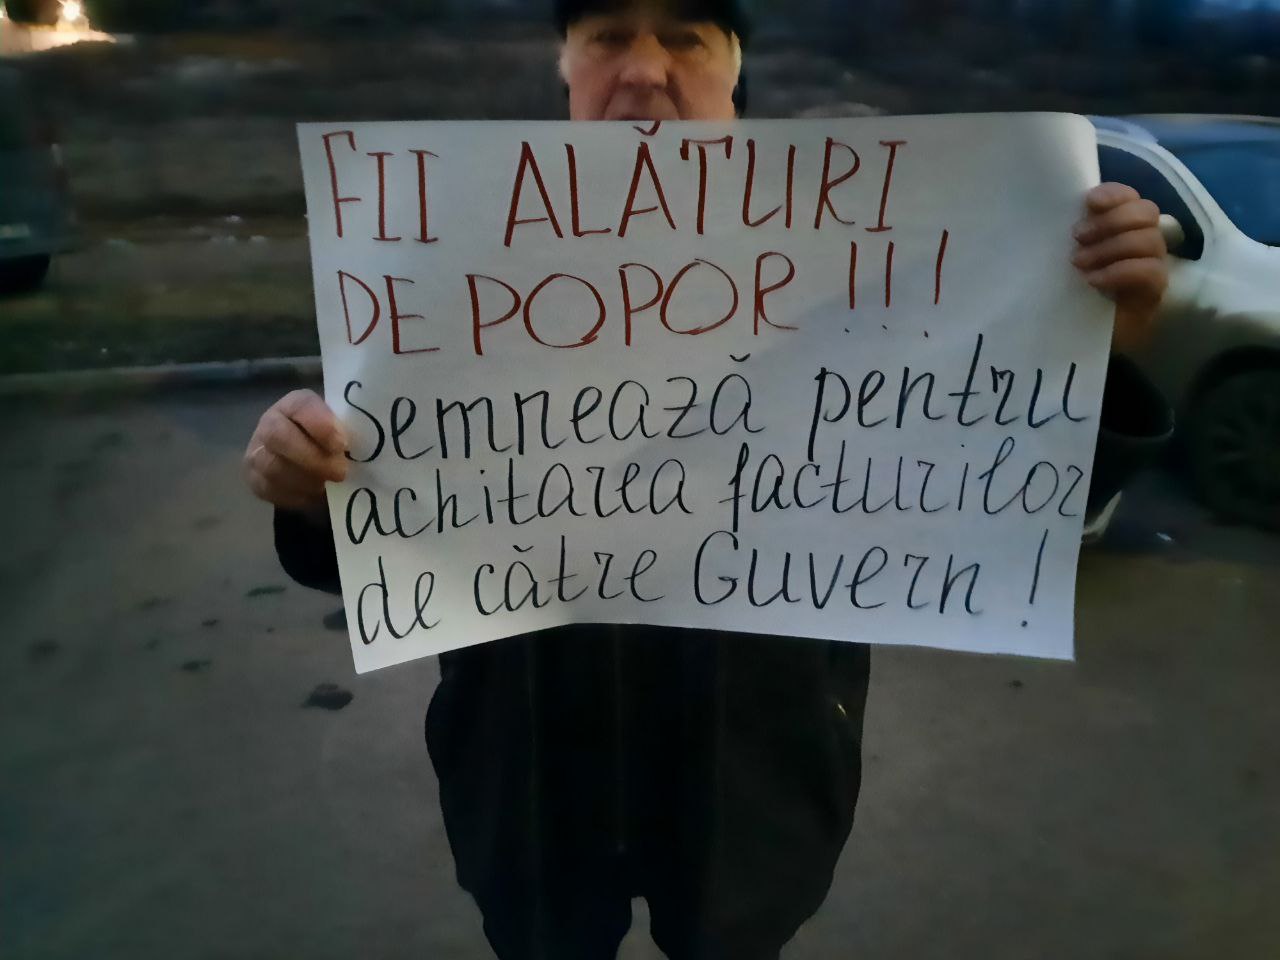 FII ALĂTURI
DE POPOR!!!
Semnează pentru
achitarea facturilor
de către Guvern!